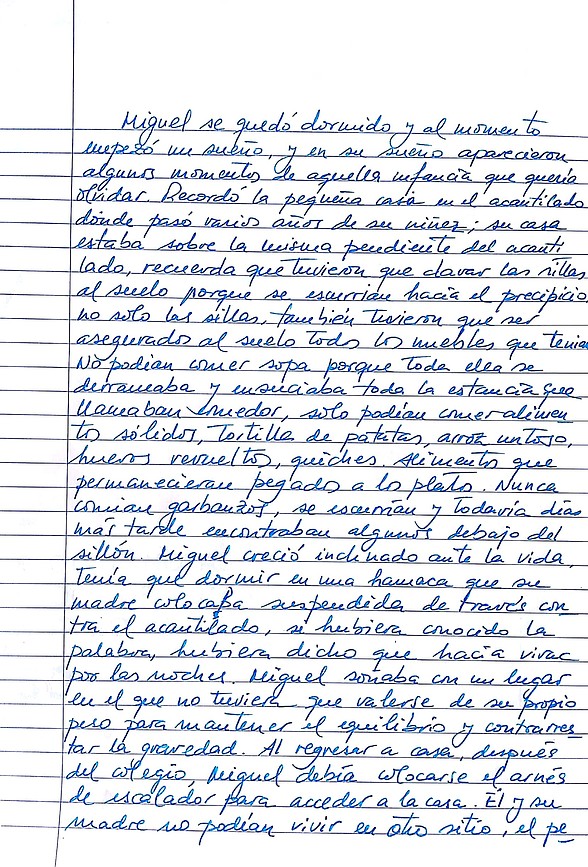 Miguel se quedó dormido y al momento
empezó un sueño, y en su sueño aparecieron
algunos momentos de aquella infancia que quería
olvidar. Recordó la pequeña casa en el acantilado
donde pasó varios años de su niñez; su casa
estaba sobre la misma pendiente del acanti
lado, recuerda que tuvieron que clavar las sillas
al suelo porque se escurrían hacia el precipicio
no solo las sillas, también tuvieron que ser
asegurados al suelo todo los muebles que tenía
No podían comer sopa porque toda ella se
derramaba y ensuciaba toda la estancia que
llamaban comedor, solo podían comer alimen
tos sólidos, tortilla de patatas, arroz untoso,
huevos revueltos, quiches. Alimentos que
permanecieran pegado a los plato. Nunca
comían garbanzos, se escurrían y todavía días
más tarde encontraban algunos debajo del
sillón. Miguel creció inclinado ante la vida,
tenía que dormir en una hamaca que su
madre colocaba suspendida de través con
tra el acantilado, si hubiera conocido la
palabra, hubiera dicho que hacía vivac
por las noches. Miguel soñaba con un lugar
en el que no tuviera que valerse de su propio
peso para mantener el equilibrio y contrarres
tar la gravedad. Al regresar a casa, después
del colegio, Miguel debía colocarse el arnés
de escalador para acceder a la casa. Él y su
madre no podían vivir en otro sitio, el pe